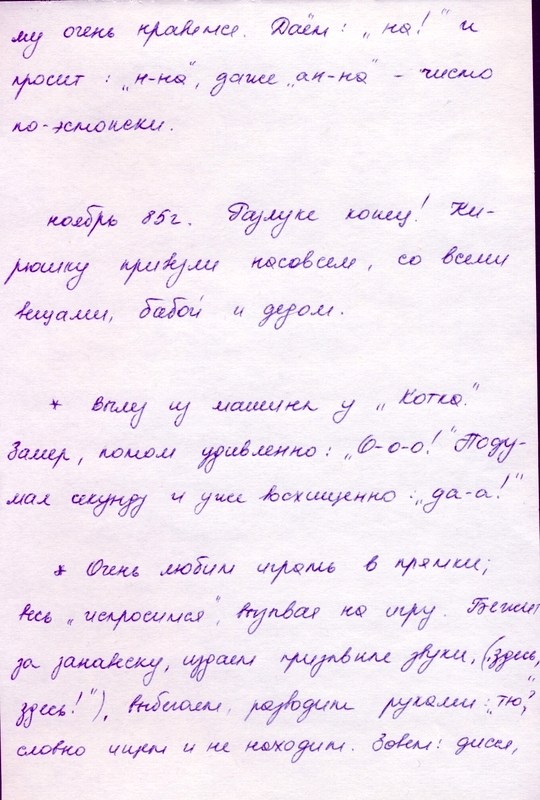 му очень нравится. Даём: „на!“ и
просит: „н-на“, даже „ан-на“ – чисто
по-эстонски.
ноябрь 85г. Разлуке конец! Ки-
рюшку привезли насовсем, со всеми
вещами, бабой и дедом.
* Вылез из машины у „Котка“.
Замер, потом удивленно: „О-о-о!“ Поду-
мал секунду и уже восхищенно: „да-а!“
* Очень любит играть в прятки;
весь „испросился“, втягивая на игру. Бежит
за занавеску, издает призывные звуки, („здесь,
здесь!“), выбегает, разводит руками: „тю“,
словно ищет и не находит. Зовет: